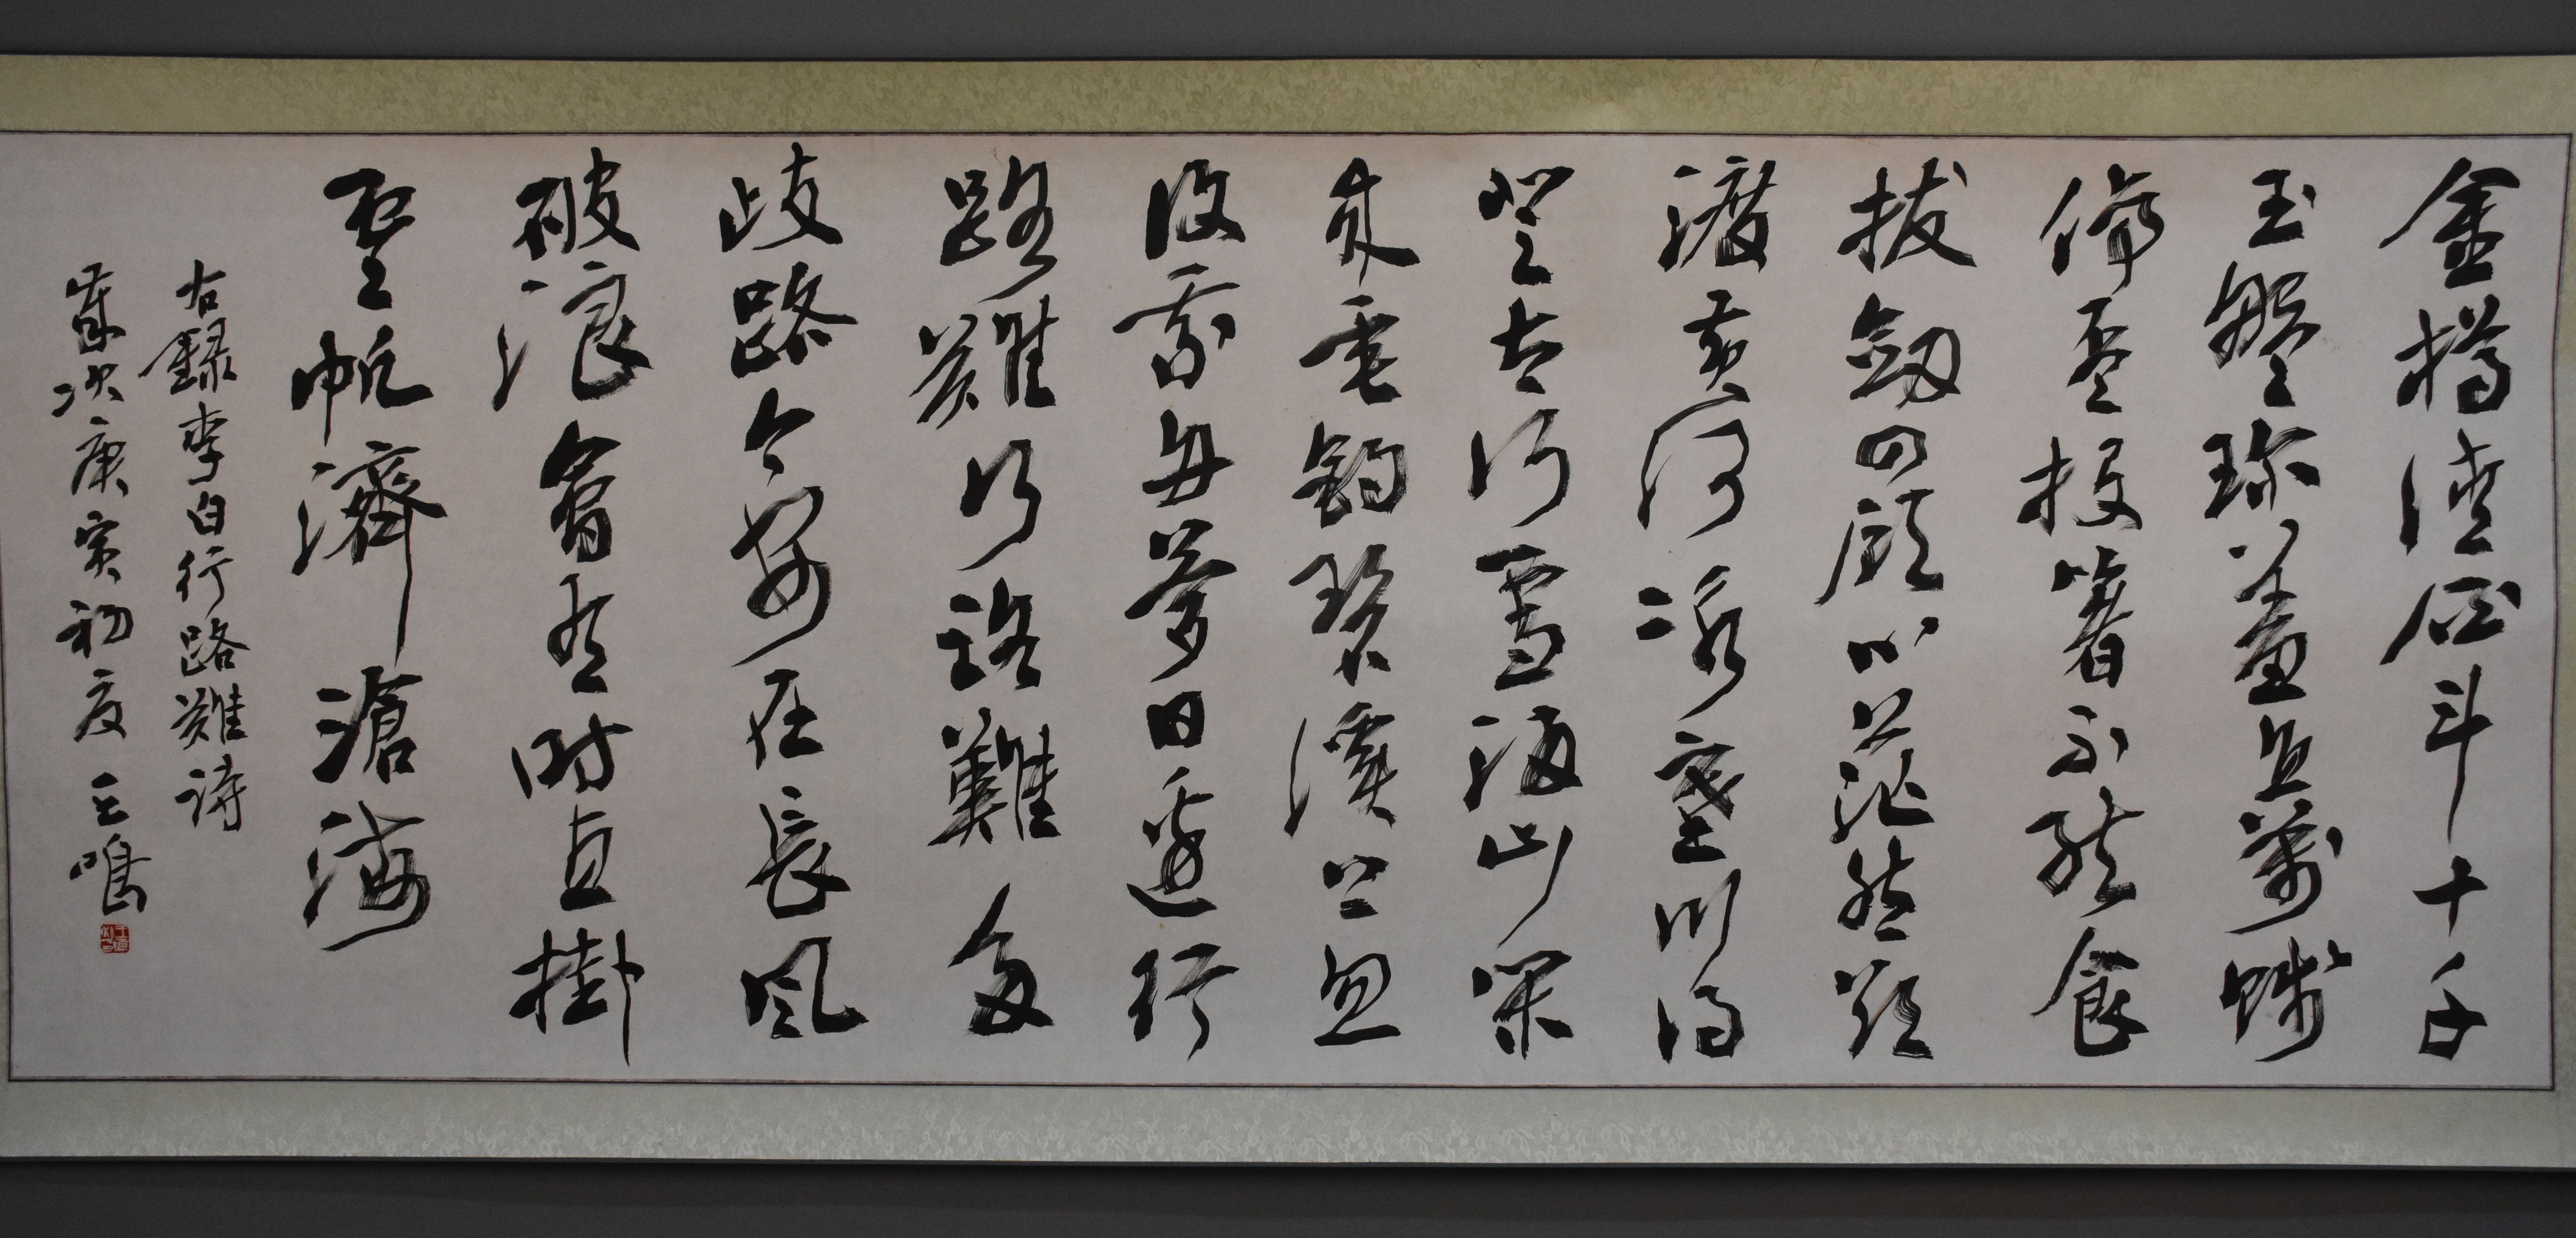 金樽清酒斗十千
玉盤珍羞直萬錢
停盃投箸不能食
拔劍四顧心茫然欲
渡黃河冰塞川將
登太行雪滿山閑
來垂釣碧溪上忽
復乘舟夢日邊行
路難行路難多
歧路今安在長風
破浪會有時直掛
雲帆濟滄海
右錄李白行路難詩
歲次庚寅初夏 王鳴